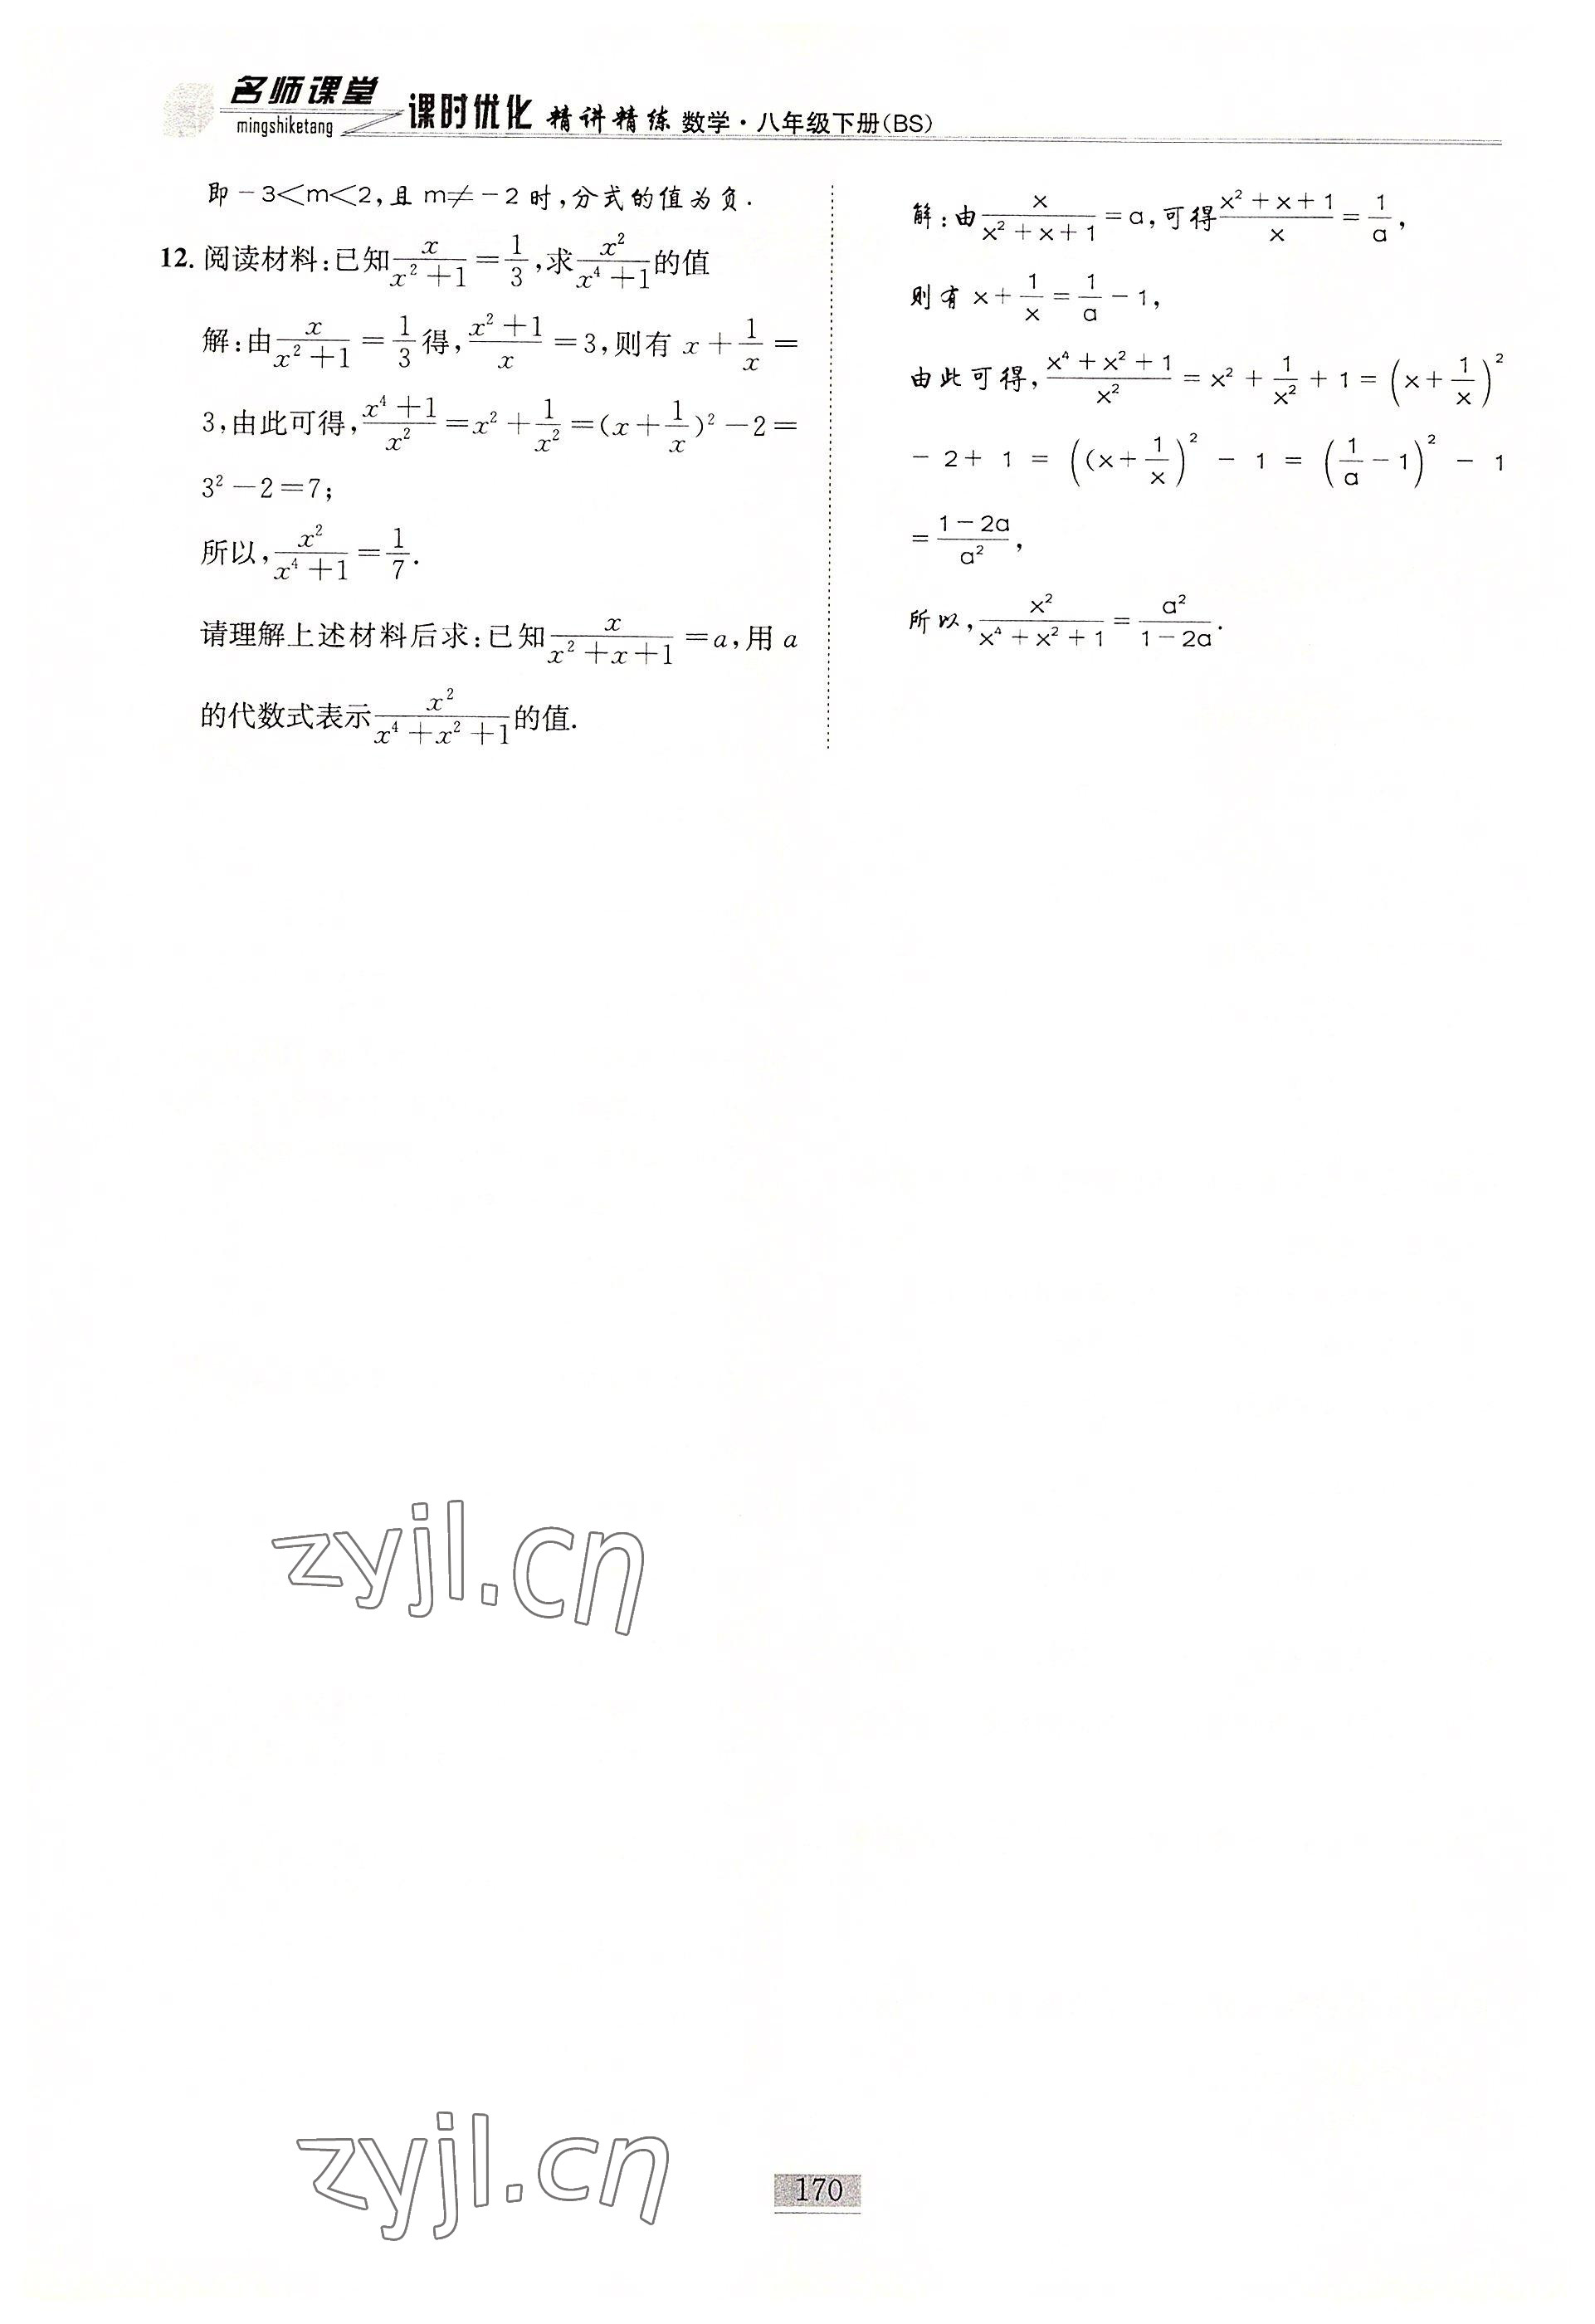 名师课堂
mingshiketang
课时优化 精讲精练 数学·八年级下册(BS)
即-3<m<2,且 m≠-2 时,分式的值为负.
12. 阅读材料:已知 x/(x²+1) = 1/3,求 x²/(x⁴+1) 的值
解:由 x/(x²+1) = 1/3 得, (x²+1)/x = 3,则有 x + 1/x =
3,由此可得, (x⁴+1)/x² = x² + 1/x² = (x + 1/x)² - 2 =
3² - 2 = 7;
所以, x²/(x⁴+1) = 1/7.
请理解上述材料后求:已知 x/(x²+x+1) = a,用 a
的代数式表示 x²/(x⁴+x²+1) 的值.
解:由 x/(x²+x+1) = a,可得 (x²+x+1)/x = 1/a,
则有 x + 1/x = 1/a - 1,
由此可得, (x⁴+x²+1)/x² = x² + 1/x² + 1 = (x + 1/x)²
- 2 + 1 = ((x + 1/x)² - 1 = (1/a - 1)² - 1
= (1-2a)/a²,
所以, x²/(x⁴+x²+1) = a²/(1-2a).
zyjl.cn
zyjl.cn
170